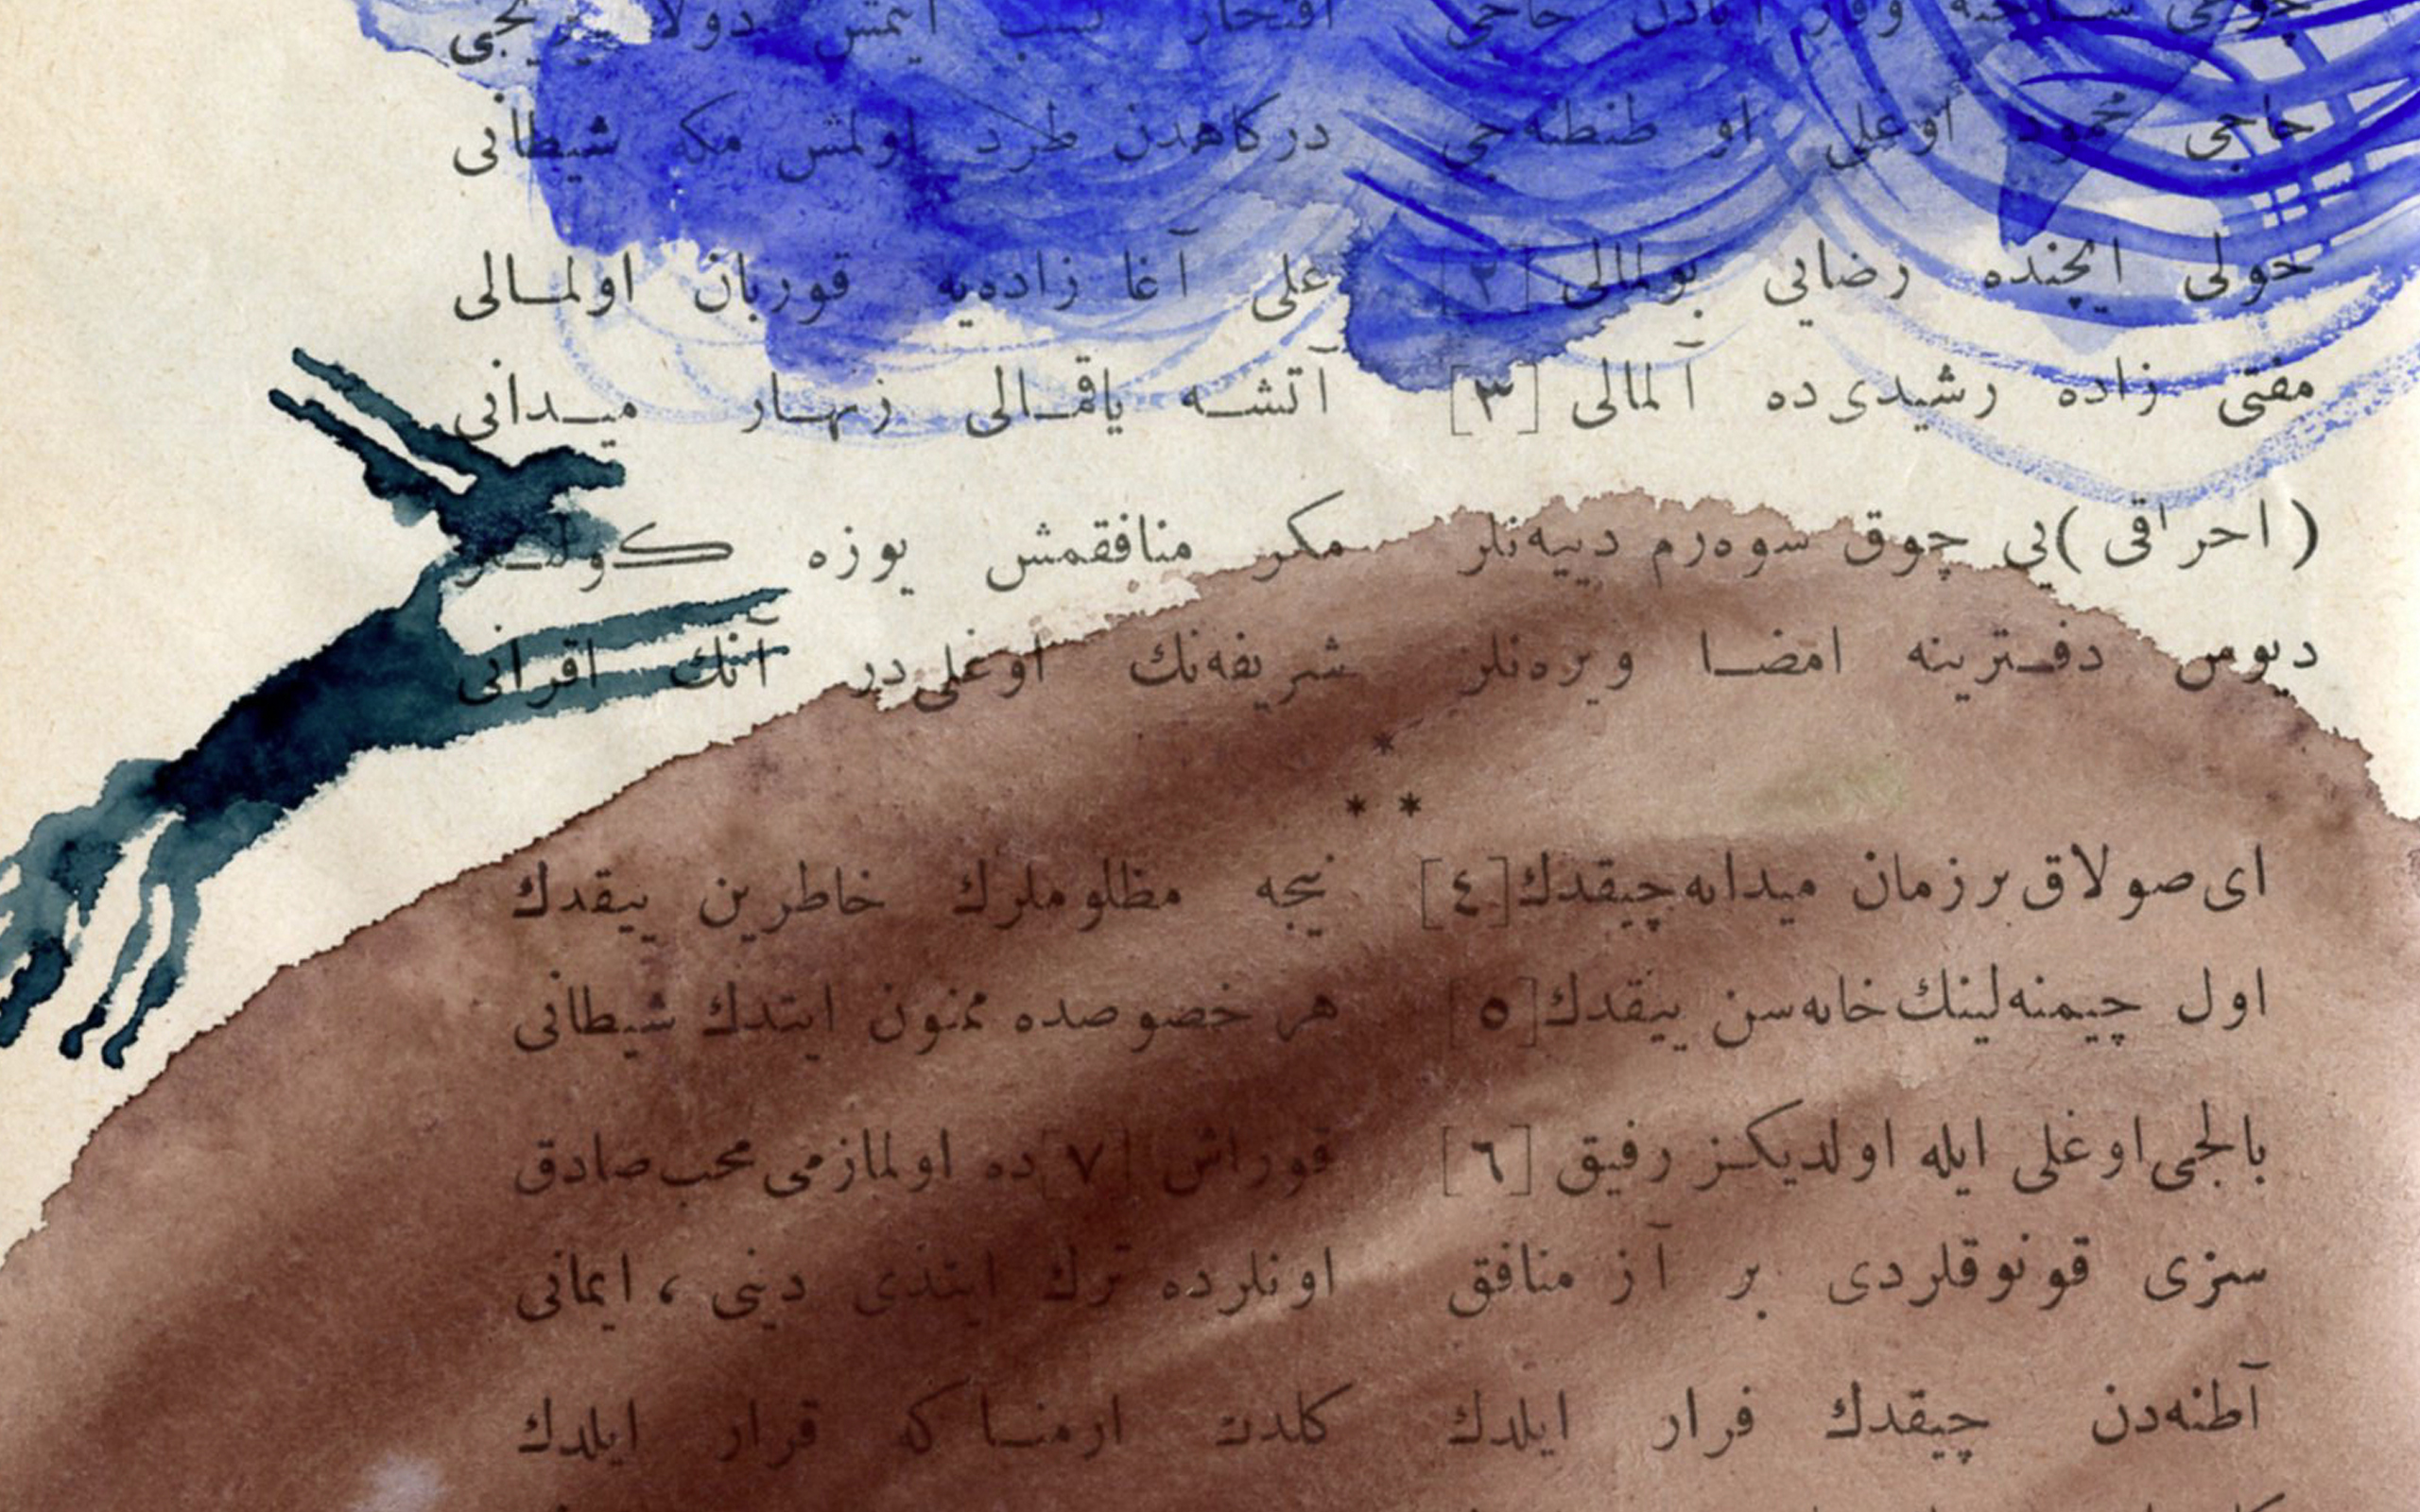 حاجی محمود اوغلی او طنطنه‌جی درکاهدن طرد اولمش مکه شیطانی
حولی ایچنده رضایی بولمالی [۲] علی آغا زاده‌یه قوربان اولمالی
مفتی زاده رشیدی ده آلمالی [۳] آتشه یاقمالی زنهار میدانی
(احراقی)یی چوق سوه‌رم دییه‌نلر مکر منافقمش یوزه کولنلر
دیوس دفترینه امضا ویره‌نلر شریفه‌نك اوغلی‌در آنك اقرانی
*
* *
ای صولاق بر زمان میدانه چیقدك [٤] نیجه مظلوملرك خاطرین ییقدك
اول چیمنه‌لینك خانه‌سن ییقدك [٥] هر خصوصده ممنون ایتدك شیطانی
بالجی اوغلی ایله اولدیکز رفیق [٦] قوراش [٧] ده اولمازمی محب صادق
سزی قونوقلردی بر آز منافق اونلرده ترك ایتدی دینی ، ایمانی
آطنه‌دن چیقدك فرار ایلدك کلدك ارمناکه قرار ایلدك